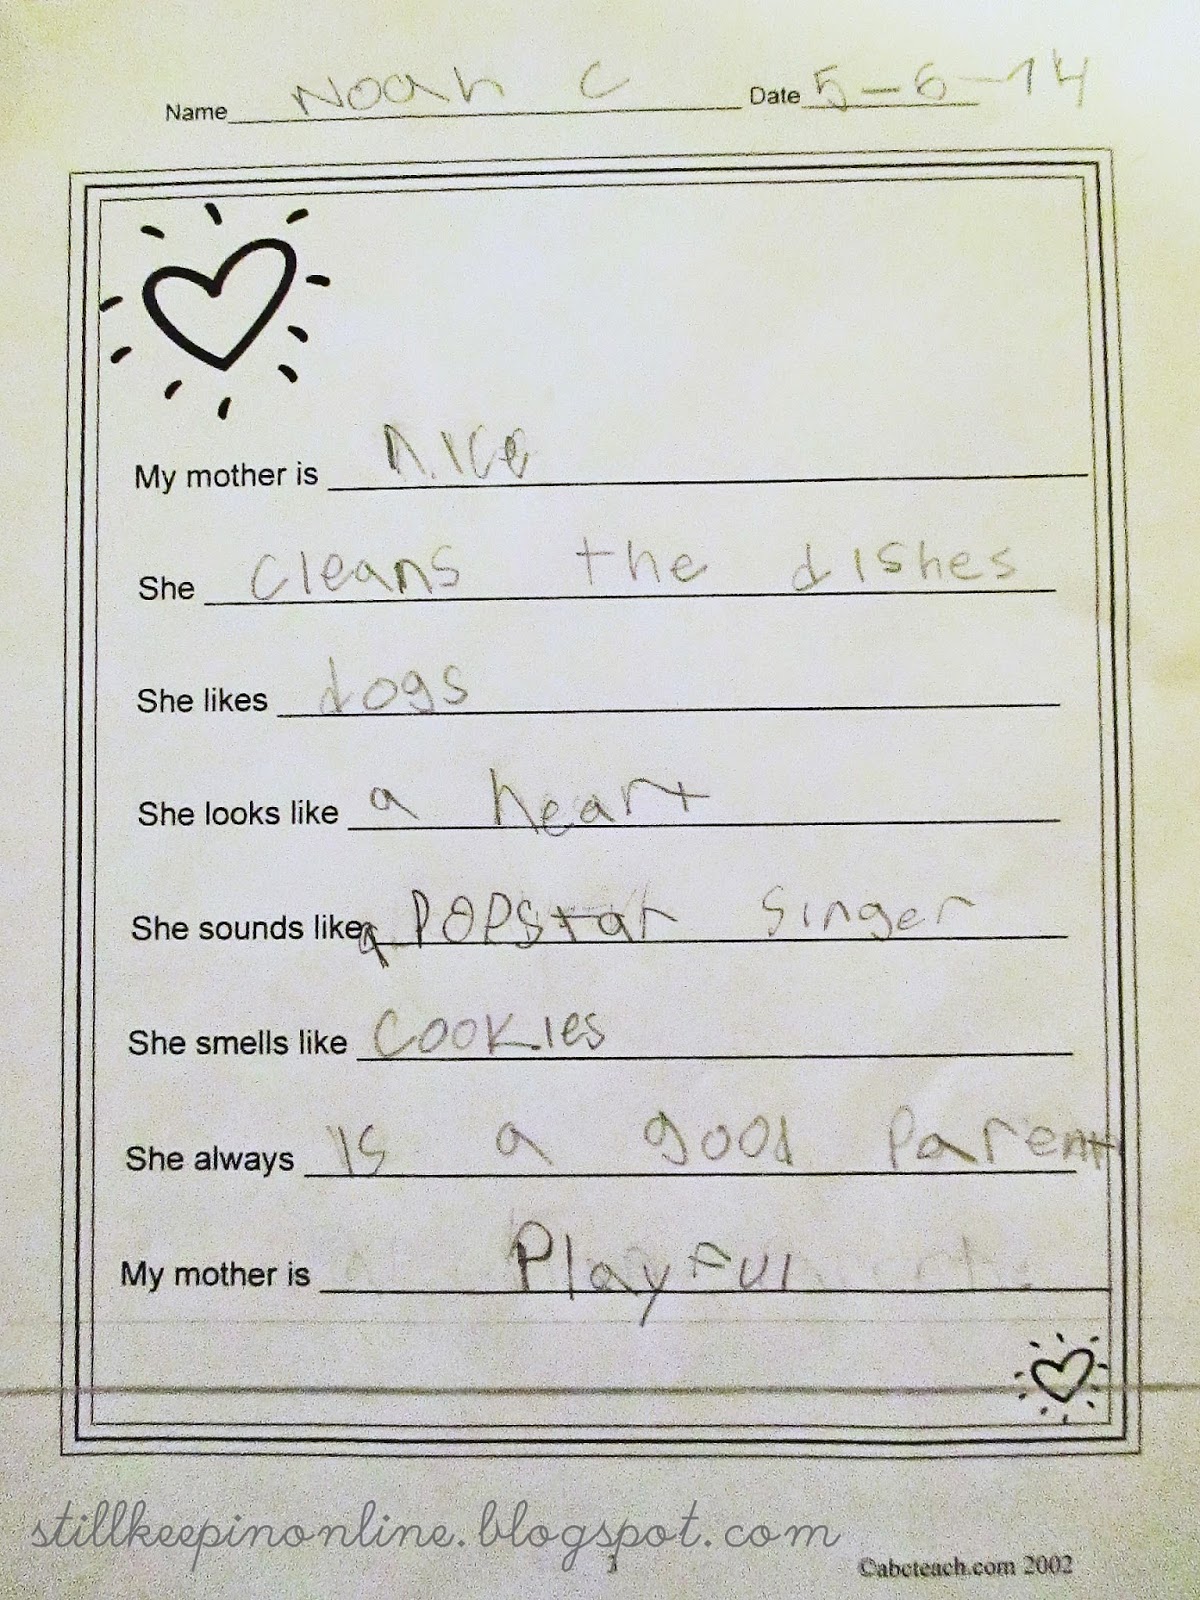 Name Noah C Date 5-6-14
My mother is nice
She cleans the dishes
She likes dogs
She looks like a heart
She sounds like a POPStar singer
She smells like cookies
She always is a good parent
My mother is Playful
stillkeepinonline.blogspot.com
3
©abcteach.com 2002